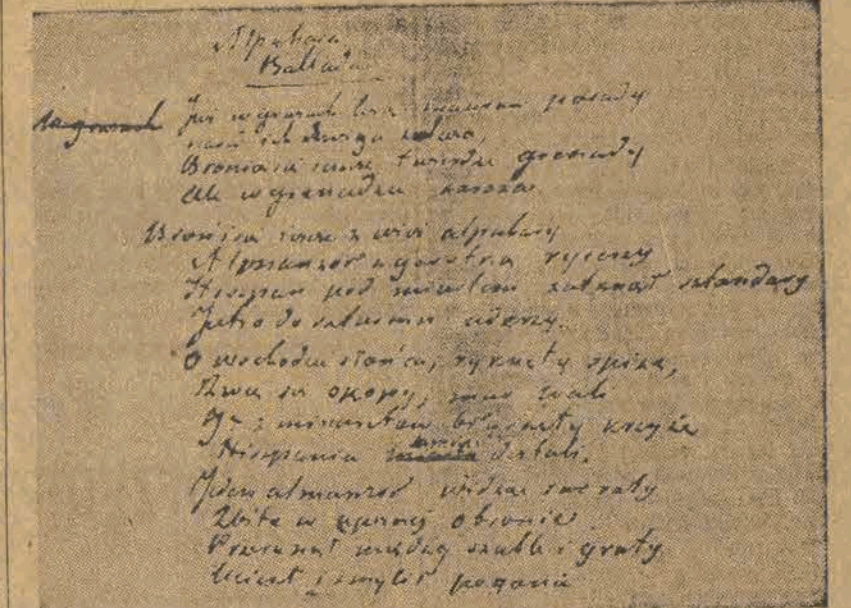 Alpuhara
Ballada
w gruzach Już w gruzach leżą maurow posady
ich dzwiga
Bronią się jeszcze twierdze grenady
Ale w grenadzie zaraza
Broni się jeszcze z wież alpuhary
Almanzor z garstką rycerzy
Hiszpan pod miastem zatknął sztandary
Jutro do szturmu uderzy.
O wschodzie słońca, ryknęły spiże,
Rwą się okopy, mur wali
Już z minaretow błysnęły krzyże
zamku
Hiszpania miasta dostali.
Jeden almanzor widząc swe roty
Zbite w upornej obronie
Przerznął między szable i groty
Uciekł i zmylił pogonie